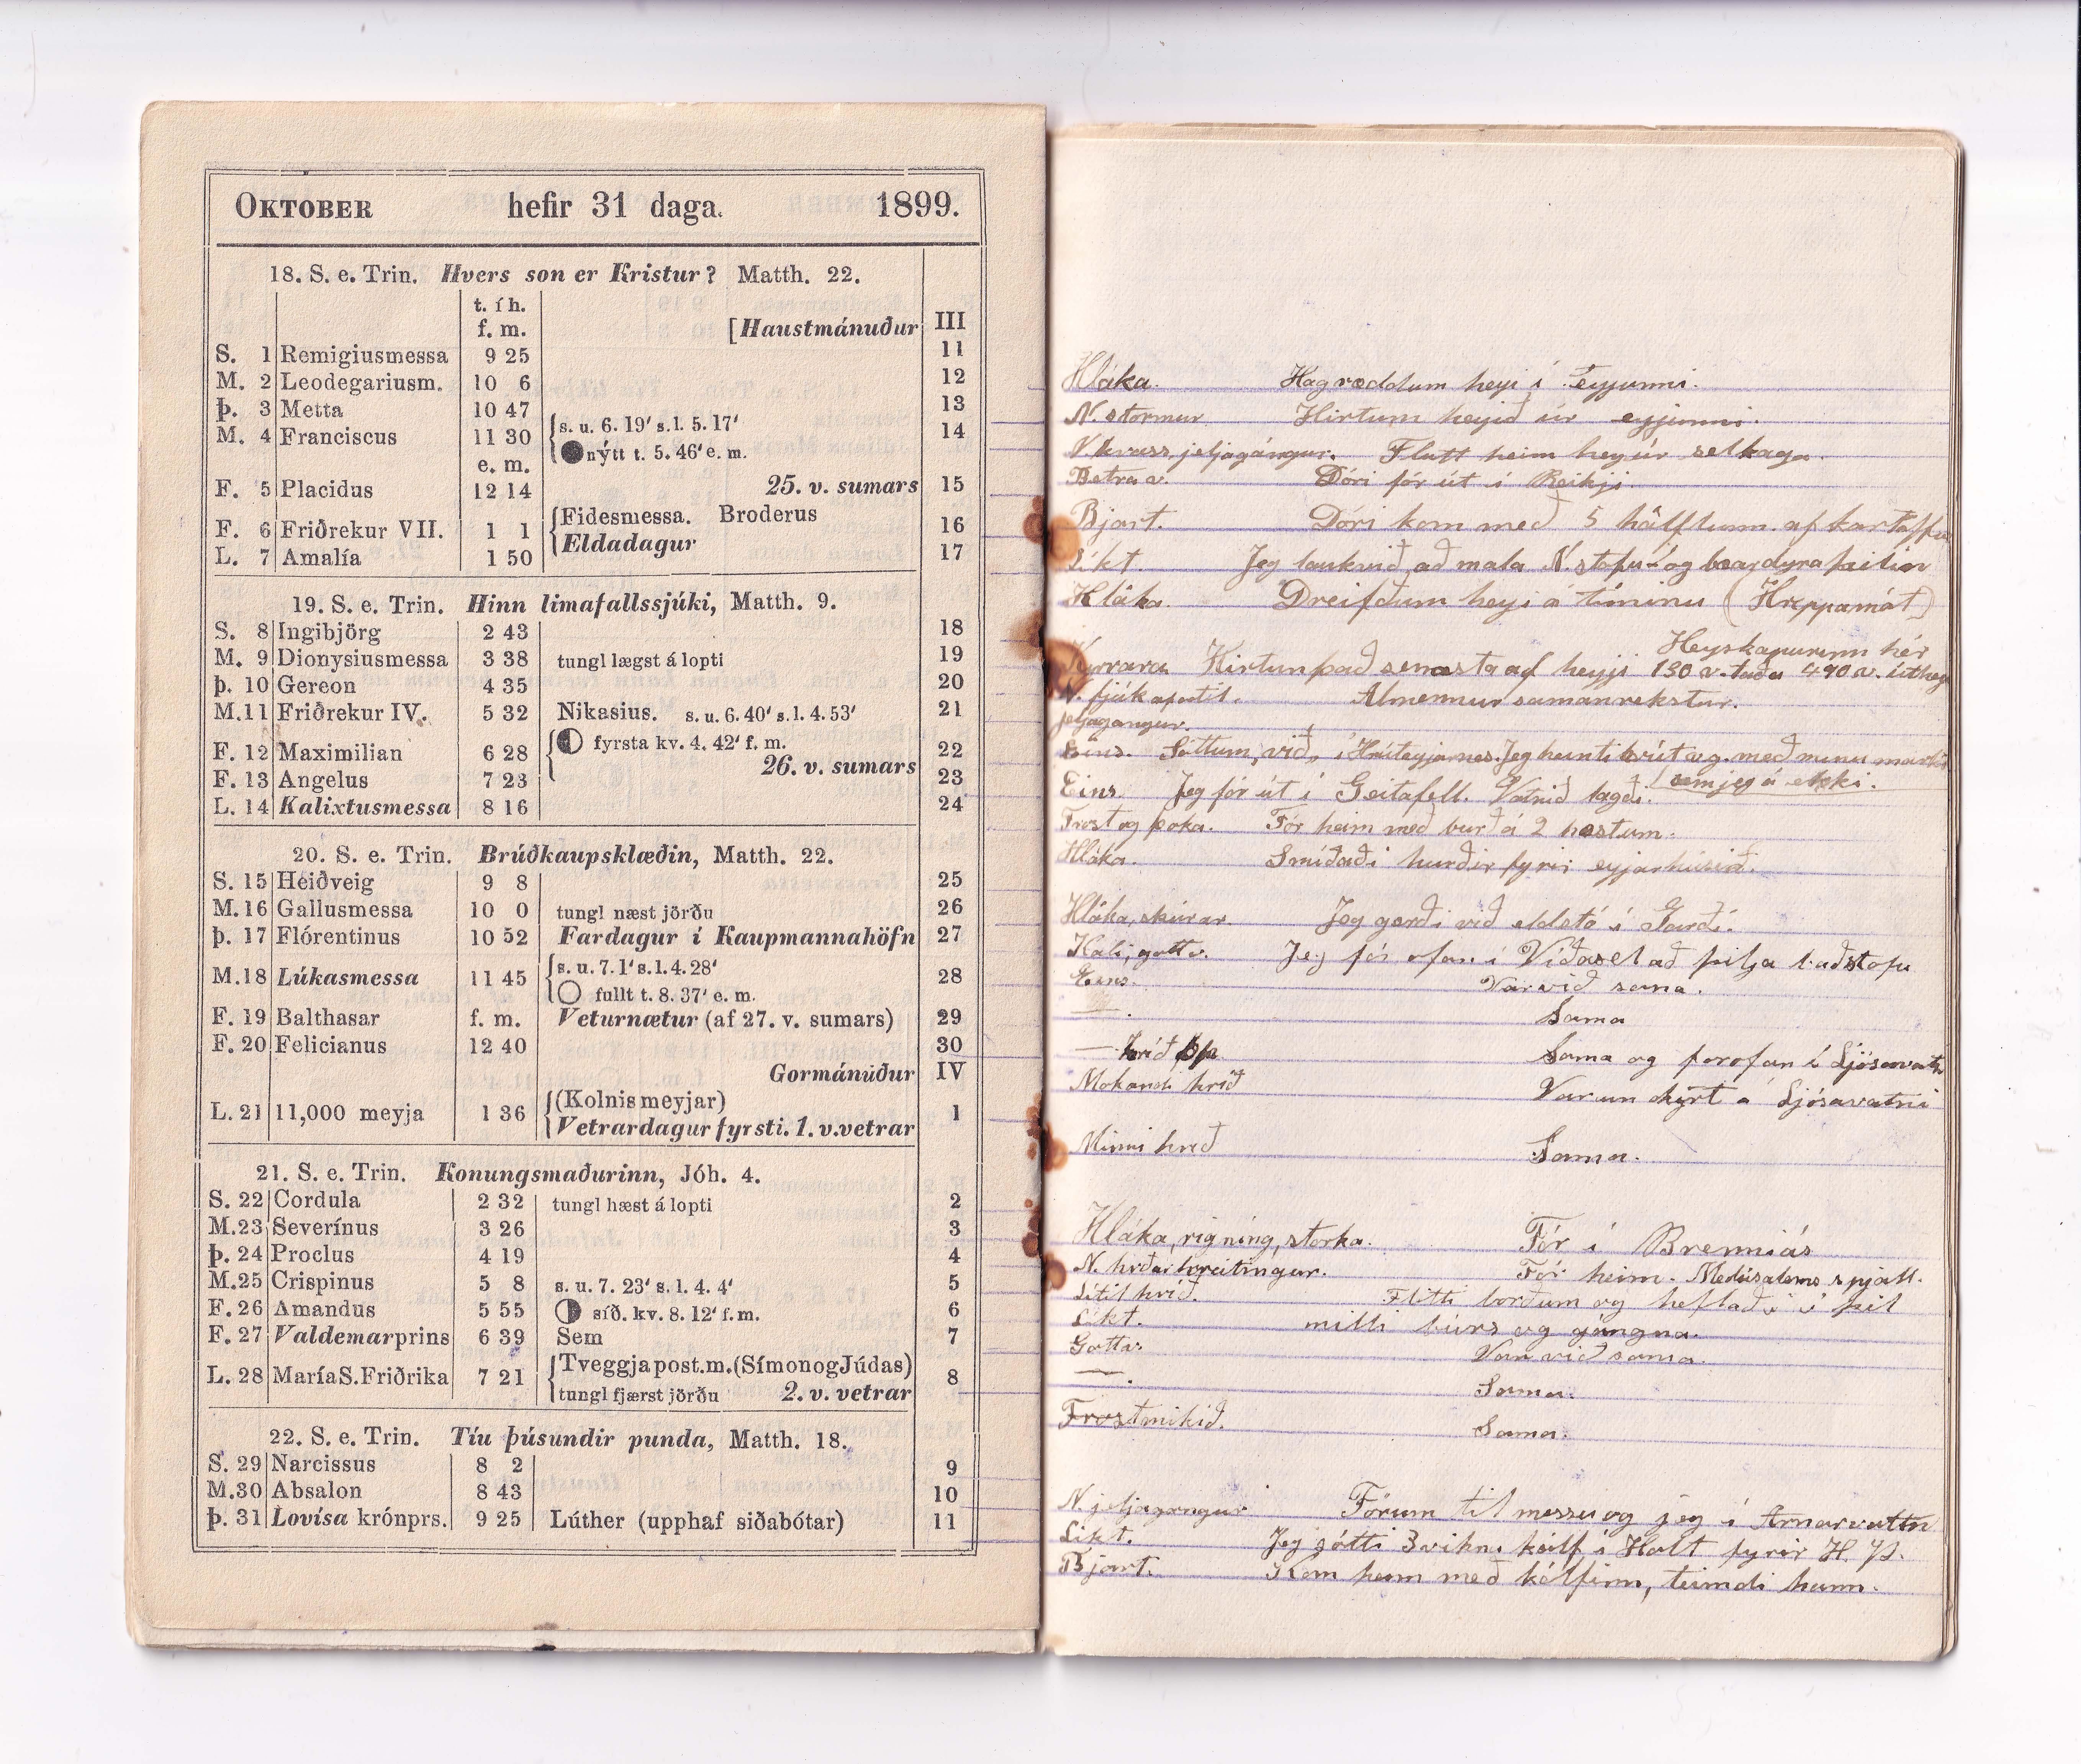 OKTOBER hefir 31 daga. 1899.
18. S. e. Trin. Hvers son er Kristur? Matth. 22.
t. í h.
f. m. [Haustmánuður III
S. 1 Remigiusmessa 9 25 11
M. 2 Leodegariusm. 10 6 12
Þ. 3 Metta 10 47 13
M. 4 Franciscus 11 30 s. u. 6. 19' s. l. 5. 17' 14
nýtt t. 5. 46' e. m.
e. m.
F. 5 Placidus 12 14 25. v. sumars 15
F. 6 Friðrekur VII. 1 1 Fidesmessa. Broderus 16
Eldadagur
L. 7 Amalía 1 50 17
19. S. e. Trin. Hinn limafallssjúki, Matth. 9.
S. 8 Ingibjörg 2 43 18
M. 9 Dionysiusmessa 3 38 tungl lægst á lopti 19
Þ. 10 Gereon 4 35 20
M. 11 Friðrekur IV. 5 32 Nikasius. s. u. 6. 40' s. l. 4. 53' 21
F. 12 Maximilian 6 28 fyrsta kv. 4. 42' f. m. 22
26. v. sumars
F. 13 Angelus 7 23 23
L. 14 Kalixtusmessa 8 16 24
20. S. e. Trin. Brúðkaupsklæðin, Matth. 22.
S. 15 Heiðveig 9 8 25
M. 16 Gallusmessa 10 0 tungl næst jörðu 26
Þ. 17 Flórentinus 10 52 Fardagur í Kaupmannahöfn 27
M. 18 Lúkasmessa 11 45 s. u. 7. 1' s. l. 4. 28' 28
fullt t. 8. 37' e. m.
F. 19 Balthasar f. m. Veturnætur (af 27. v. sumars) 29
F. 20 Felicianus 12 40 30
Gormánuður IV
L. 21 11,000 meyja 1 36 (Kolnismeyjar) 1
Vetrardagur fyrsti. 1. v. vetrar
21. S. e. Trin. Konungsmaðurinn, Jóh. 4.
S. 22 Cordula 2 32 tungl hæst á lopti 2
M. 23 Severínus 3 26 3
Þ. 24 Proclus 4 19 4
M. 25 Crispinus 5 8 s. u. 7. 23' s. l. 4. 4' 5
F. 26 Amandus 5 55 síð. kv. 8. 12' f. m. 6
F. 27 Valdemar prins 6 39 Sem 7
L. 28 María S. Friðrika 7 21 Tveggja post. m. (Símon og Júdas) 8
tungl fjærst jörðu 2. v. vetrar
22. S. e. Trin. Tíu þúsundir punda, Matth. 18.
S. 29 Narcissus 8 2 9
M. 30 Absalon 8 43 10
Þ. 31 Lovísa krónprs. 9 25 Lúther (upphaf siðabótar) 11
Hláka. Hagræddum heyi í Eyjunni.
N. stormur Hirtum heyið úr eyjunni.
N. hvass, jeljagángur. Flutt heim hey úr selhaga.
Betra v. Dóri fór út í Reikji.
Bjart. Dóri kom með 5 hálftunn. af kartöflu
Líkt. Jeg lauk við að mala N. stofu- og bæardyraþilin
Hláka. Dreifðum heyi á túninu (Hreppamót)
Heyskapurinn hér
Kyrrara Hirtum það senasta af heyji 130 v. taða 490 v. úthey
N. fjúk apartil. Almennur samanrekstur.
jeljagangur.
Eins. Sóttum við í Hrúteyjarnes. Jeg heimti hrút v.g. með mínu marki
sem jeg á ekki.
Eins Jeg fór út í Geitafell. Vatnið lagði.
Frost og þoka. Fór heim með burð á 2 hestum.
Hláka. Smíðaði hurðir fyrir eyjarhúsið.
Hláka, skúrar Jeg gerði við eldstó í Garði.
Kali, gott v. Jeg fór ofan í Víðasel að þilja baðstofu
Eins. Var við sama.
—. Sama
— hríð Sama og fór ofan í Ljósavatn
Mokandi hríð Varum kyrt á Ljósavatni
Minni hríð Sama.
Hláka, rigning, storka. Fór í Brenniás
N. hríðarhreitingur. Fór heim. Medúsalems spjall.
Lítil hríð. Fletti borðum og heflaði í þil
Líkt. milli búrs og gangna.
Gott v. Var við sama.
—. Sama.
Frost mikið. Sama.
N. jeljagangur Fórum til messu og jeg í Arnarvatn
Líkt. Jeg sótti 3 vikna kálf í Holt fyrir H. P.
Bjart. Kom heim með kálfinn, teimdi hann.